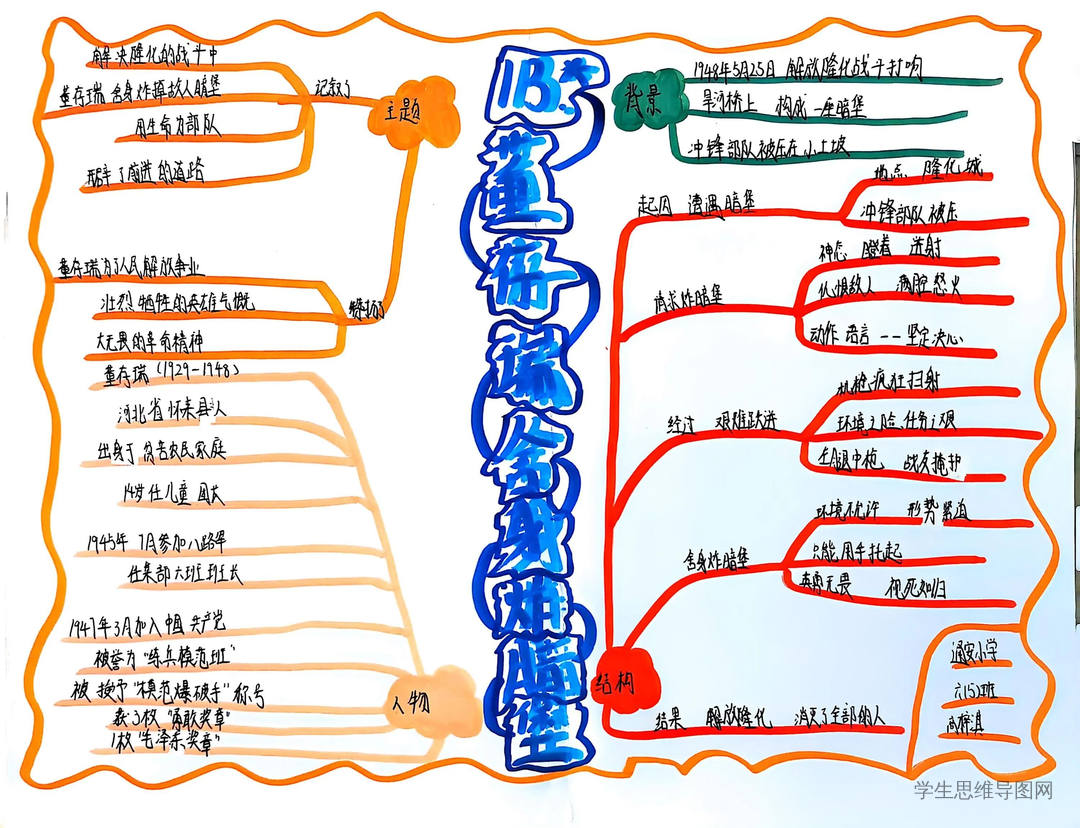 13.董存瑞舍身炸暗堡
主题
记叙了
解决隆化的战斗中
董存瑞舍身炸掉敌人暗堡
用生命为部队
开辟了前进的道路
赞扬了
董存瑞为了人民解放事业
壮烈牺牲的英雄气慨
大无畏的革命精神
人物
董存瑞(1929-1948)
河北省怀来县人
出身于贫苦农民家庭
14岁任儿童团长
1945年7月参加八路军
任某部六班班长
1947年3月加入中国共产党
被誉为"练兵模范班"
被授予"模范爆破手"称号
获3枚"勇敢奖章"
1枚"毛泽东奖章"
背景
1948年5月25日 解放隆化战斗打响
旱河桥上 构成一座暗堡
冲锋部队被压在小土坡
结构
起因 遭遇暗堡
地点 隆化城
冲锋部队被压
请求炸暗堡
神态 瞪着 迸射
仇恨敌人 满腔怒火
动作 语言 -- 坚定决心
经过 艰难跃进
机枪疯狂扫射
环境之险 任务之艰
左腿中枪 战友掩护
舍身炸暗堡
环境不允许 形势紧迫
只能用手托起
英勇无畏 视死如归
结果 解放隆化 消灭了全部的人
通安小学
六(5)班
学生思维导图网